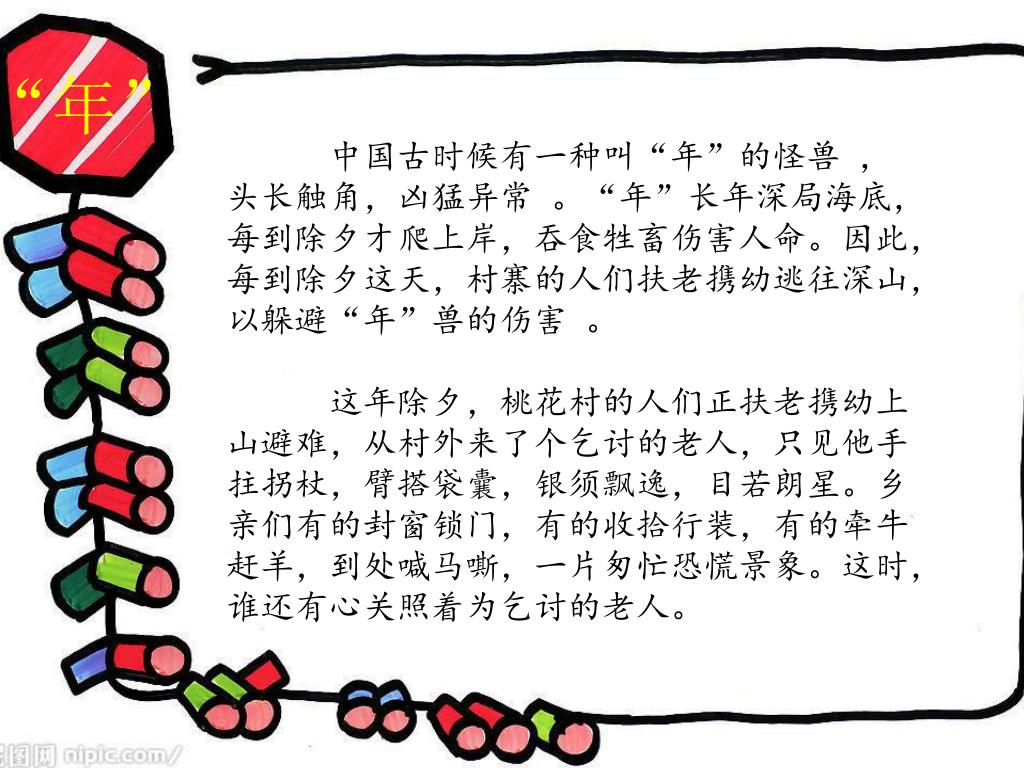 “年”
中国古时候有一种叫“年”的怪兽 ，
头长触角，凶猛异常 。“年”长年深局海底，
每到除夕才爬上岸，吞食牲畜伤害人命。因此，
每到除夕这天，村寨的人们扶老携幼逃往深山，
以躲避“年”兽的伤害 。
这年除夕，桃花村的人们正扶老携幼上
山避难，从村外来了个乞讨的老人，只见他手
拄拐杖，臂搭袋囊，银须飘逸，目若朗星。乡
亲们有的封窗锁门，有的收拾行装，有的牵牛
赶羊，到处喊马嘶，一片匆忙恐慌景象。这时，
谁还有心关照着为乞讨的老人。
图网 nipic.com/